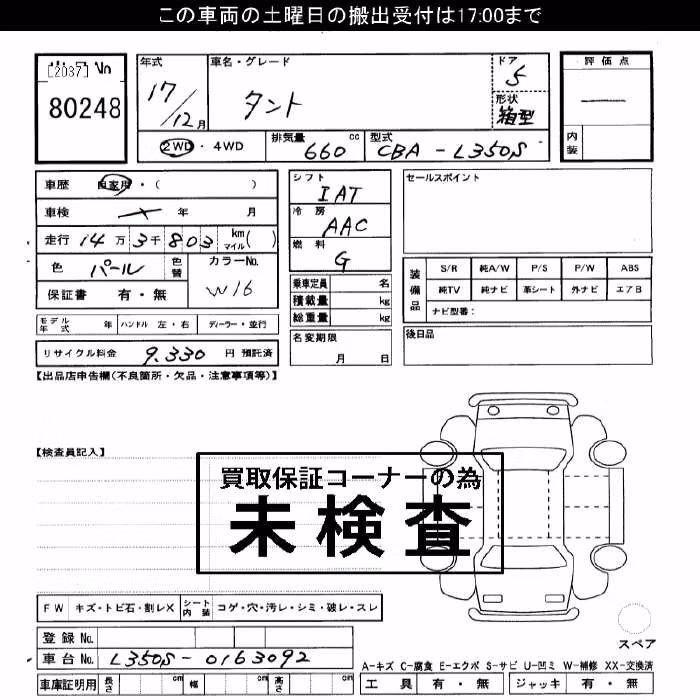 この車両の土曜日の搬出受付は17:00まで
[2037] No
80248
年式 17/12月
車名・グレード タント
ドア 5
形状 箱型
評価点 —
内装
2WD・4WD
排気量 660 cc
型式 CBA - L350S
車歴 自家用・( )
車検 年 月
走行 14万3千803 km マイル( )
色 パール 色替
カラーNo. W16
保証書 有・無
シフト IAT
冷房 AAC
燃料 G
乗車定員 名
積載量 kg
総重量 kg
セールスポイント
装備品 S/R 純A/W P/S P/W ABS
純TV 純ナビ 革シート 外ナビ エアB
ナビ型番:
モデル年式 年 ハンドル 左・右 ディーラー・並行
リサイクル料金 9.330 円 預託済
名変期限 月 日
後日品
【出品店申告欄(不良箇所・欠品・注意事項等)】
【検査員記入】
買取保証コーナーの為
未検査
FW キズ・トビ石・割レX シート内装 コゲ・穴・汚レ・シミ・破レ・スレ
登録 No.
車台 No. L350S-0163092
車庫証明用 長さ cm 幅 cm 高さ cm
スペア
A-キズ C-腐食 E-エクボ S-サビ U-凹ミ W-補修 XX-交換済
工具 有・無 ジャッキ 有・無